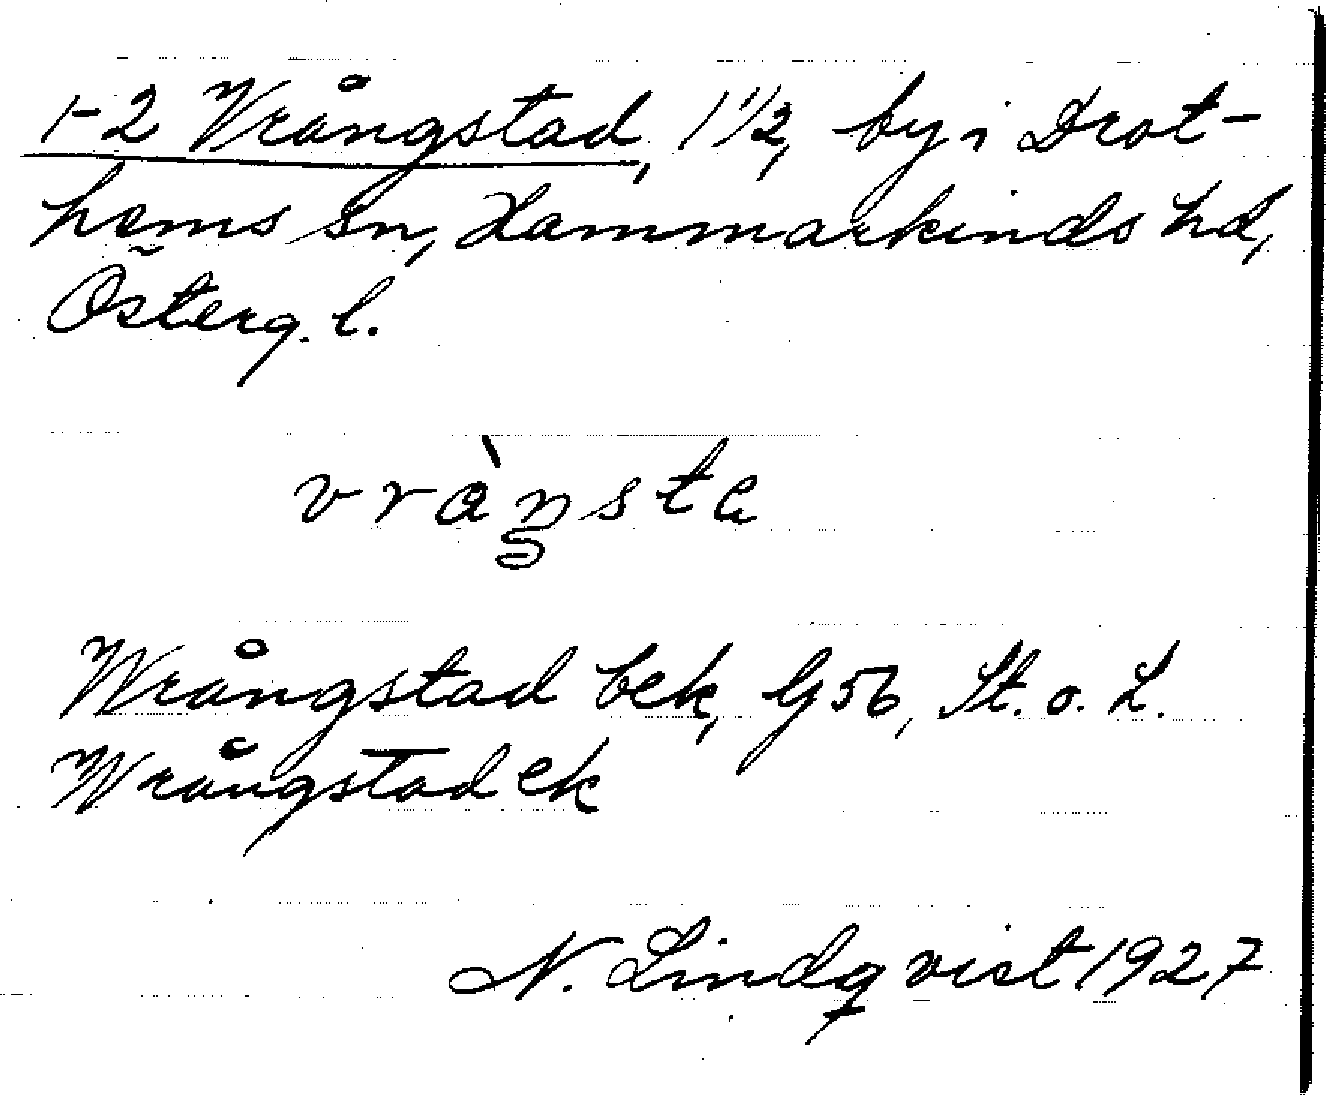 1-2 Vrångstad, 1 1/2, by i Drot-
hems sn, Hammarkinds hd,
Österg. l.
vràŋsta
Wrångstad bek, G 56, St. o. L.
Wrångstad ek
N. Lindqvist 1927